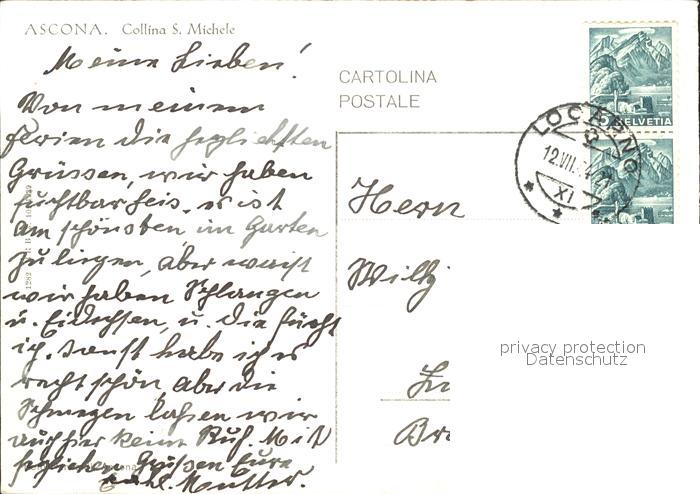 ASCONA. Collina S. Michele
CARTOLINA
POSTALE
HELVETIA
LOCARNO
12.VII.
XI
Meine Lieben!
Von meinen
Ferien die herzlichsten
Grüssen, wir haben
fuchtbar heis, es ist
am schönsten im Garten
zu liegen, aber weist
wir haben Schlangen
u. Eidechsen, u. die fürcht
ich. Sonst habe ich es
recht schön, aber die
Schmerzen lassen wir
auch hier keine Ruh. Mit
herzlichen Grüssen Eure
Mutter.
Herrn
Willy
privacy protection
Datenschutz